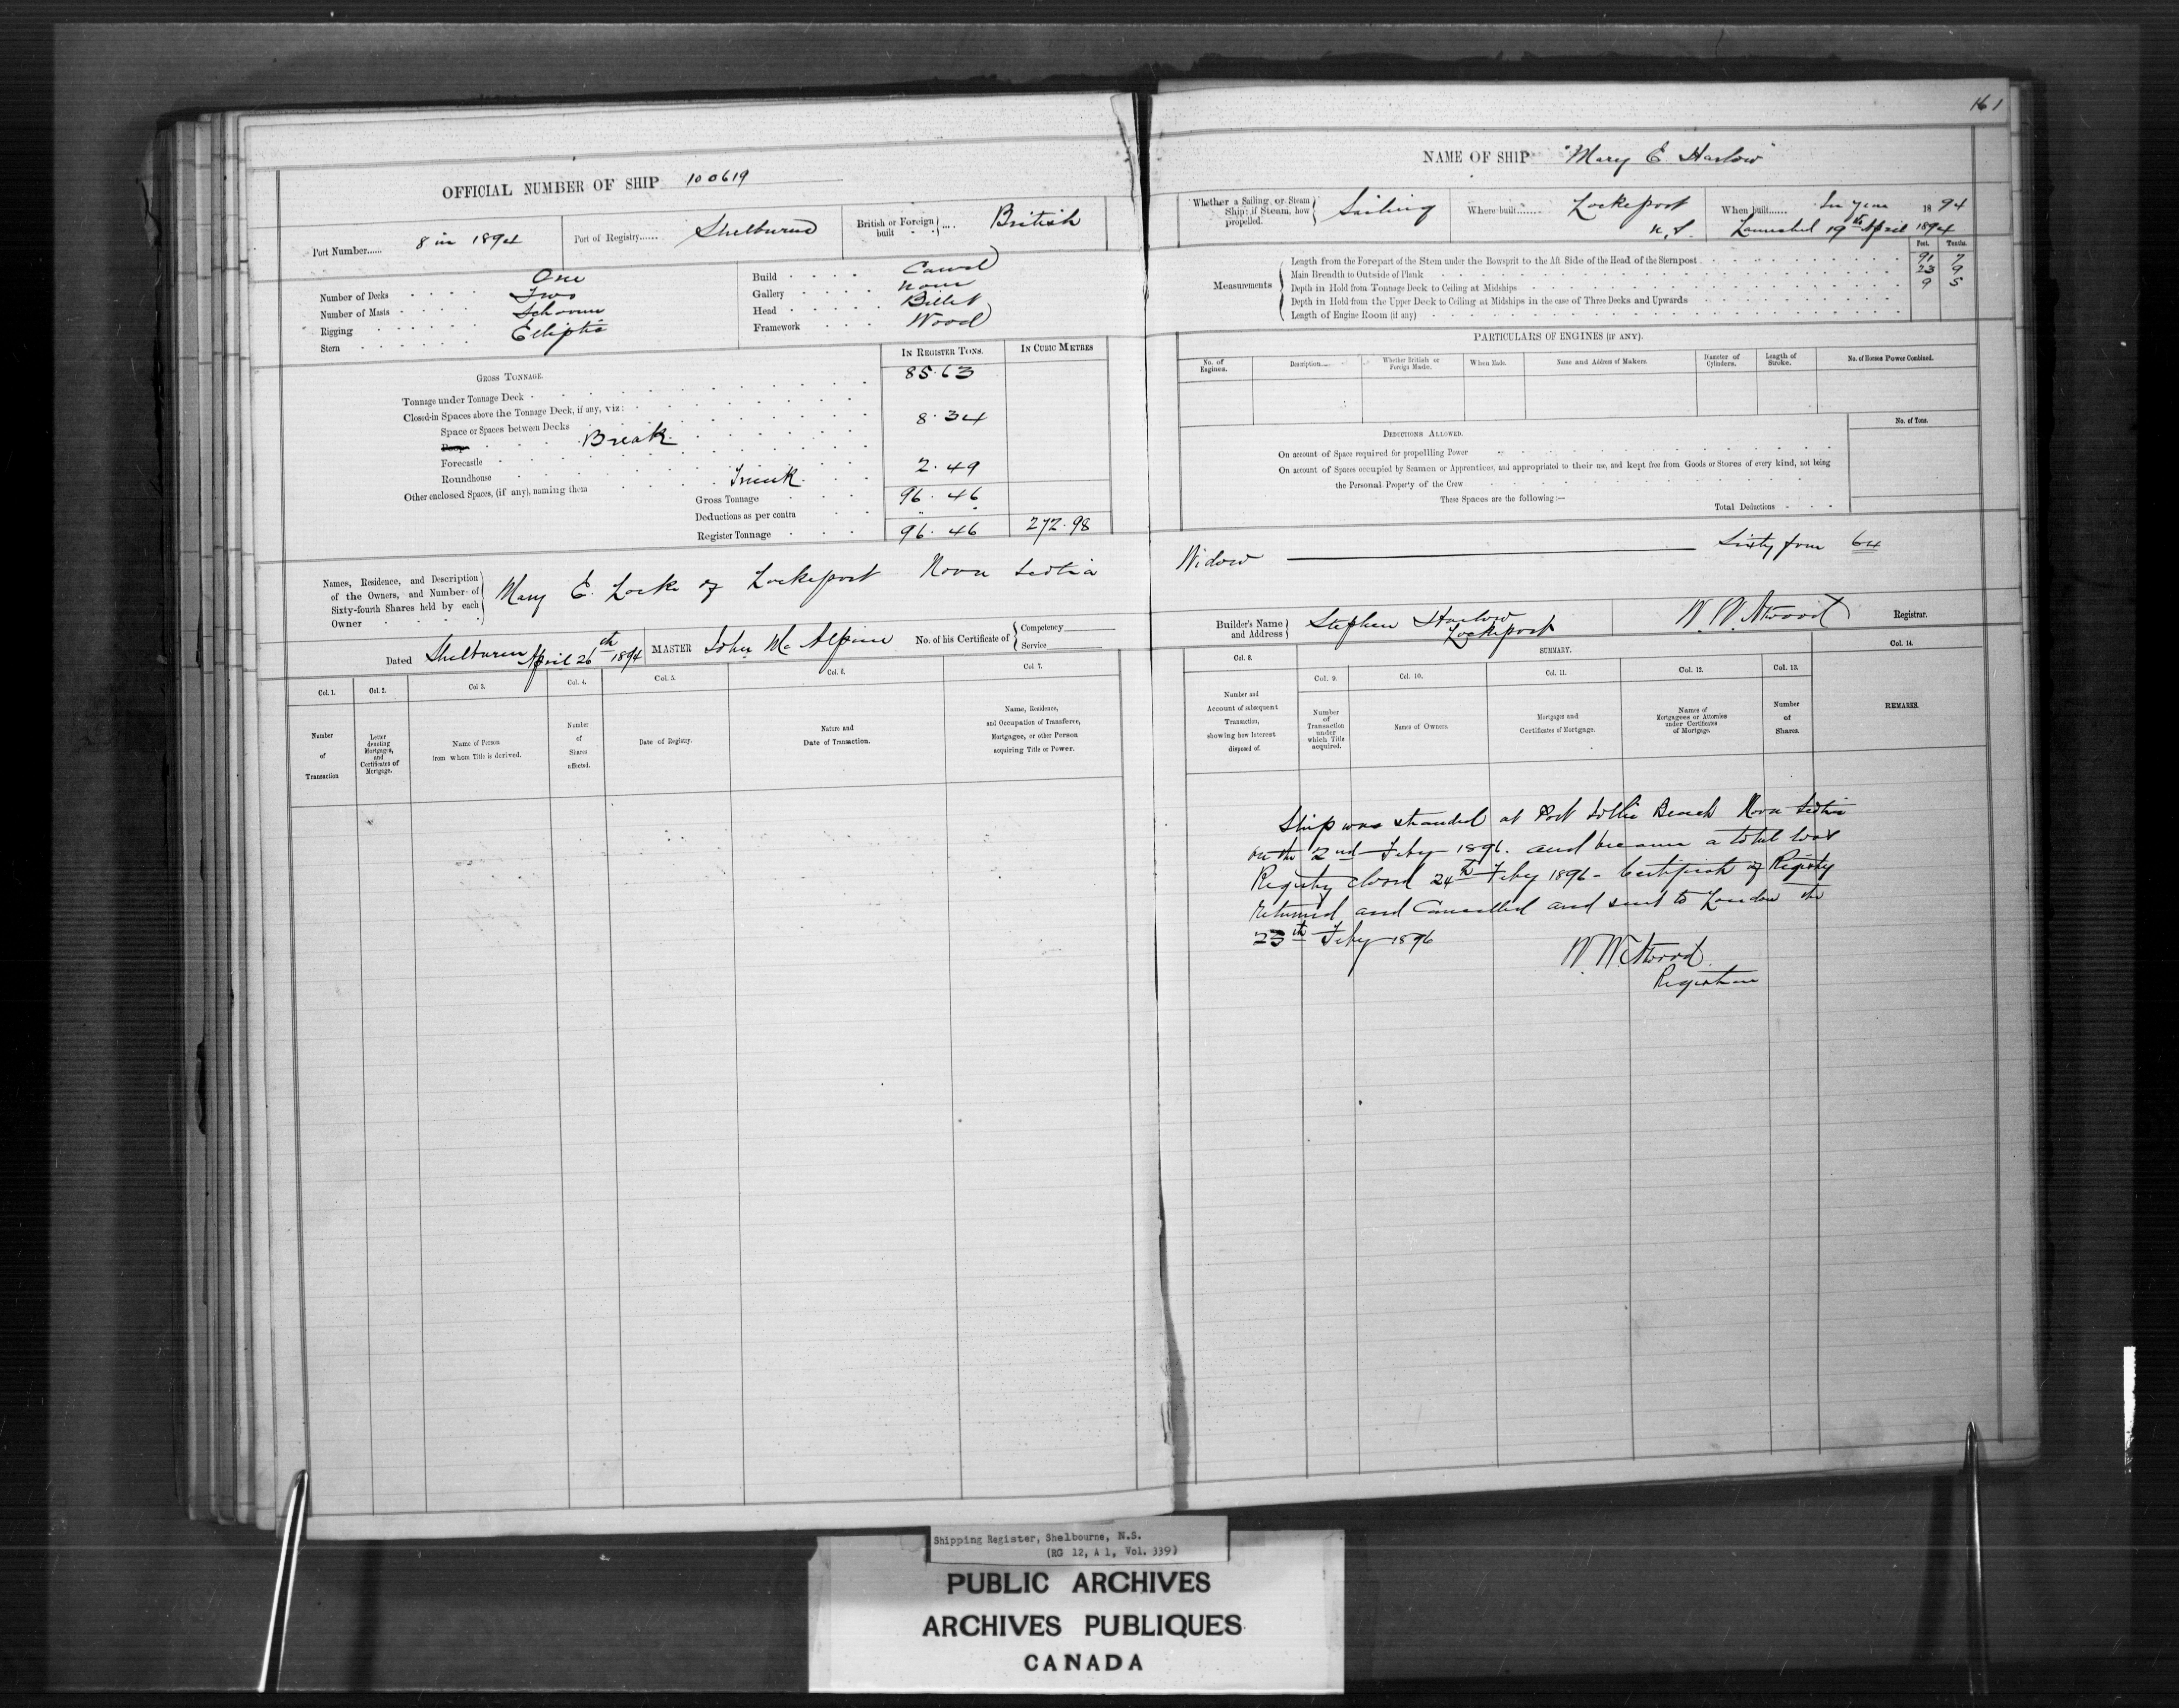 161
OFFICIAL NUMBER OF SHIP 100619
Port Number...... 8 in 1894
Port of Registry...... Shelburne
British or Foreign built British
Number of Decks One
Number of Masts Two
Rigging Schooner
Stern Elliptic
Build Carvel
Gallery None
Head Billet
Framework Wood
GROSS TONNAGE.
IN REGISTER TONS.
IN CUBIC METRES
Tonnage under Tonnage Deck 85.63
Closed-in Spaces above the Tonnage Deck, if any, viz:
Space or Spaces between Decks
Poop Break 8.34
Forecastle
Roundhouse
Other enclosed Spaces, (if any), naming them Trunk 2.49
Gross Tonnage 96.46
Deductions as per contra
Register Tonnage 96.46 272.98
Names, Residence, and Description of the Owners, and Number of Sixty-fourth Shares held by each Owner
Mary E. Locke of Lockeport Nova Scotia
Dated Shelburne April 26th 1894
MASTER John McAlpine
No. of his Certificate of
Competency
Service
Col. 1.
Number of Transaction
Col. 2.
Letter denoting Mortgages, and Certificates of Mortgage.
Col 3.
Name of Person from whom Title is derived.
Col. 4.
Number of Shares affected.
Col. 5.
Date of Registry.
Col. 6.
Nature and Date of Transaction.
Col. 7.
Name, Residence, and Occupation of Transferee, Mortgagee, or other Person acquiring Title or Power.
NAME OF SHIP "Mary E Harlow"
Whether a Sailing or Steam Ship; if Steam, how propelled. Sailing
Where built...... Lockeport N.S.
When built...... In year 1894
Launched 19th April 1894
Measurements
Feet. Tenths.
Length from the Forepart of the Stem under the Bowsprit to the Aft Side of the Head of the Sternpost 91 7
Main Breadth to Outside of Plank 23 9
Depth in Hold from Tonnage Deck to Ceiling at Midships 9 5
Depth in Hold from the Upper Deck to Ceiling at Midships in the case of Three Decks and Upwards
Length of Engine Room (if any)
PARTICULARS OF ENGINES (IF ANY).
No. of Engines.
Description.....
Whether British or Foreign Made.
When Made.
Name and Address of Makers.
Diameter of Cylinders.
Length of Stroke.
No. of Horses Power Combined.
DEDUCTIONS ALLOWED.
No. of Tons.
On account of Space required for propelling Power
On account of Spaces occupied by Seamen or Apprentices, and appropriated to their use, and kept free from Goods or Stores of every kind, not being
the Personal Property of the Crew
These Spaces are the following:—
Total Deductions
Widow Sixty four 64
Builder's Name and Address Stephen Harlow Lockeport
W. W. Atwood Registrar.
SUMMARY.
Col. 8.
Number and Account of subsequent Transaction, showing how Interest disposed of.
Col. 9.
Number of Transaction under which Title acquired.
Col. 10.
Names of Owners.
Col. 11.
Mortgages and Certificates of Mortgage.
Col. 12.
Names of Mortgagees or Attornies under Certificates of Mortgage.
Col. 13.
Number of Shares.
Col. 14.
REMARKS.
Ship was stranded at Port Jollie Beach Nova Scotia
on the 2nd Feby 1896. and became a total loss
Registry closed 24th Feby 1896 - Certificate of Registry
returned and Cancelled and sent to London the
25th Feby 1896
W. W. Atwood
Registrar
Shipping Register, Shelbourne, N.S.
(RG 12, A 1, Vol. 339)
PUBLIC ARCHIVES
ARCHIVES PUBLIQUES
CANADA